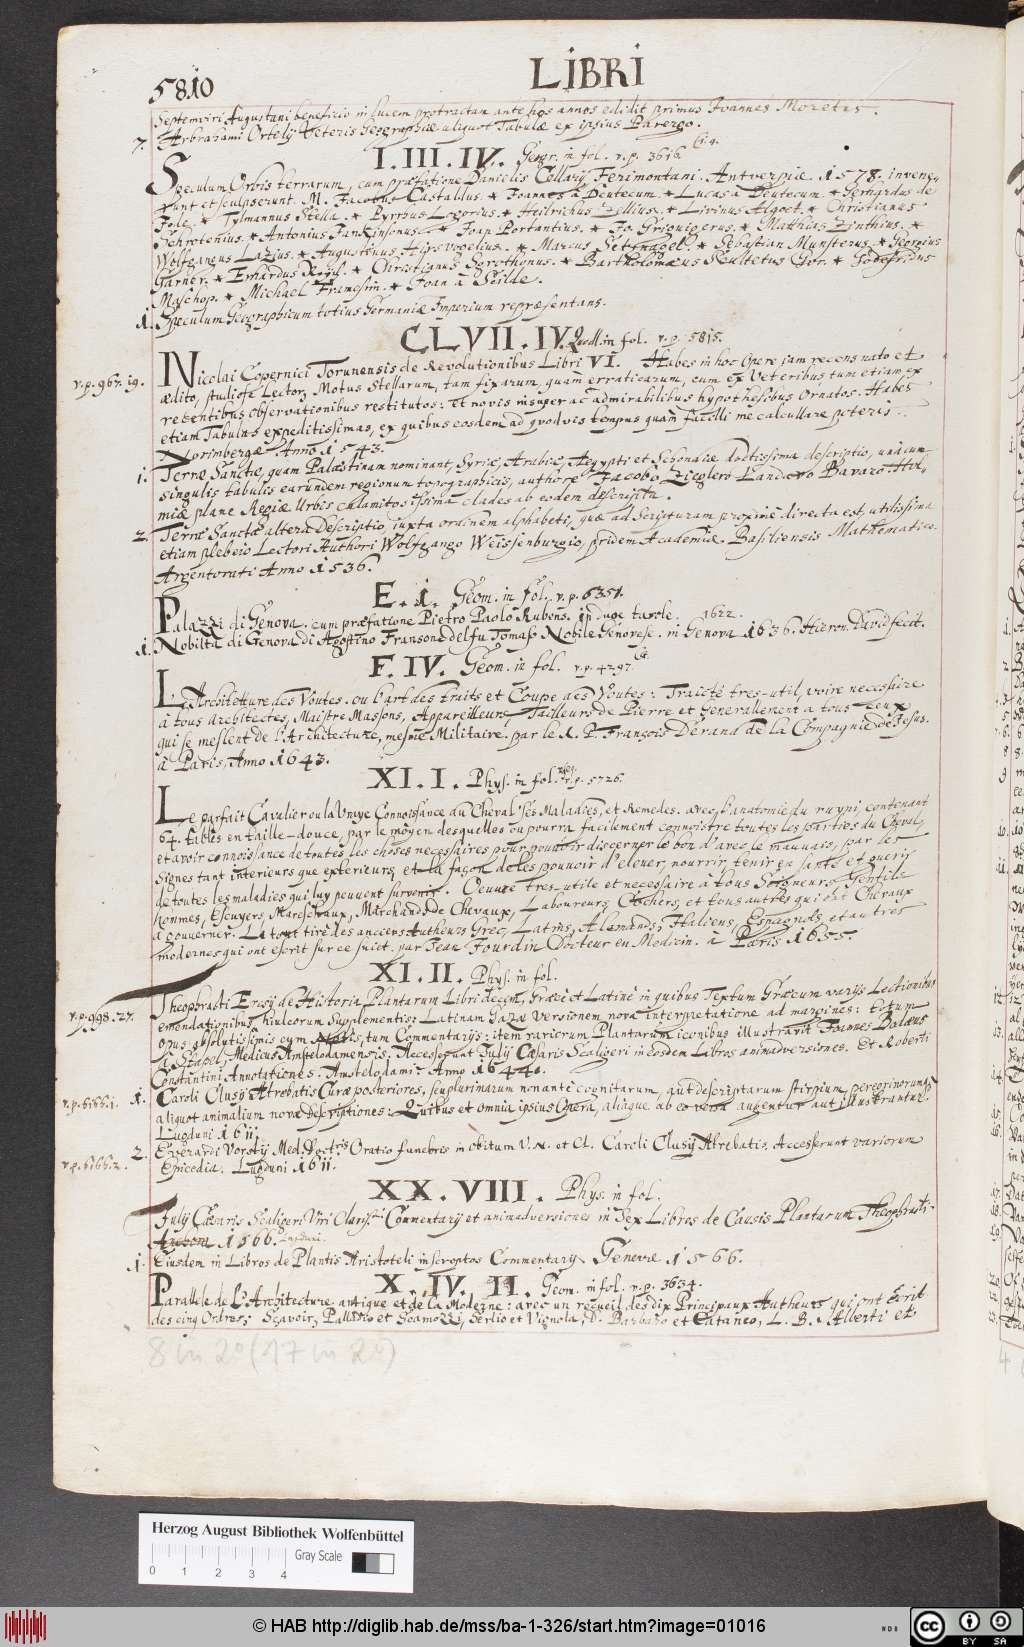 5810
LIBRI
Septemviri Augustani beneficio in lucem protractam ante hos annos edidit primus Joannes Moretus.
7. Abrahami Ortelij Veteris Geographiæ aliquot Tabulæ ex ipsius Parergo.
I. III. IV. Geogr. in fol. v.p. 3616.
Speculum Orbis terrarum, cum præfatione Danielis Cellarij Ferimontani. Antverpiæ 1578. inven-
runt et sculpserunt. M. Jacobus Castaldus. * Joannes à Deutecum. * Lucas à Deutecum * Gerardus de
Jode. * Tylmannus Stella. * Pyrrhus Legorius. * Heilrichus Zillius. * Livinus Algoet. * Christianus
Schrotenius. * Antonius Jankinsonus. * Joan Portantius. * Jo. Criginigerus. * Matthias Zinthius. *
Wolfgangus Lazius. * Augustinus Hirsvogelius. * Marcus Setznagel. * Sebastian Munsterus. * Georgius
Garner. * Erhardus Reych. * Christianus Sgrothonus. * Bartholomæus Scultetus Gor. * Godefridus
Maschop. * Michael Francsim. * Joan à Schilde.
1. Speculum Geographicum totius Germaniæ Imperium repræsentans.
CLVII. IV. Quodl. in fol. v.p. 5815.
v.p. 967. 19. Nicolai Copernici Torunensis de Revolutionibus Libri VI. Habes in hoc Opere jam recens nato et
ædito, studiose Lector, Motus Stellarum, tam fixarum, quam erraticarum, cum ex Veteribus tum etiam ex
recentibus observationibus restitutos: et novis insuper ac admirabilibus hypothesibus Ornatos. Habes
etiam Tabulas expeditissimas, ex quibus eosdem ad quodvis tempus quam facilli me calcullare poteris.
Norimbergæ Anno 1543.
1. Terræ Sanctæ, quam Palæstinam nominant, Syriæ, Arabiæ, Aegypti et Schondiæ doctissima descriptio, unà cum
singulis tabulis earundem regionum topographicis, authore Jacobo Zieglero Landavo Bavaro. Hol-
miæ plane Regiæ Urbis calamitosissima clades ab eodem descripta.
2. Terræ Sanctæ altera Descriptio juxta ordinem alphabeti, quæ ad Scripturam proximè directa est, utilissima
etiam plebeio Lectori Authori Wolfgango Weissenburgio, pridem Academiæ Basiliensis Mathematico.
Argentorati Anno 1536.
E. 1. Geom. in fol. v.p. 6351.
Palazzi di Genova. cum præfatione Pietro Paolo Rubens. in duge tavole. 1622.
1. Nobiltà di Genova di Agostino Fransone del fu Tomaso Nobile Genovese. in Genova 1636. Hieron. David fecit.
F. IV. Geom. in fol. v.p. 4297.
L'Architetture des Voutes. ou l'art des traits et Coupe des Voutes: Traicté tres-util, voire necessaire
à tous architectes, Maistre Massons, Appareilleurs, Tailleurs de Pierre et generallement a tous ceux
qui se meslent de l'Architecture, mesme Militaire. par le R. P. François Derand de la Compagnie de Jesus.
à Paris, Anno 1643.
XI. I. Phys. in fol. v.p. 5726.
Le parfait Cavalier ou la Vraye Connoissance du Cheval ses Maladies, et Remedes. avec l'anatomie du ruyni, contenant
64. tables en taille-douce, par le moyen desquelles on pourra facilement connoistre toutes les parties du Cheval,
et avoir connoissance de toutes les choses necessaires pour pouvoir discerner le bon d'avec le mauvais, par les
signes tant interieurs que exterieurs, et la façon de les pouvoir d'elever, nourrir, tenir en santé et guerir
de toutes les maladies qui luy peuvent survenir. Oeuvre tres-utile et necessaire à tous Seigneurs, Gentils
hommes, Escuyers, Mareschaux, Marchands de Chevaux, Laboureurs, Cochers, et tous autres qui ont Chevaux
a gouverner. Le tout tiré des anciens Autheurs Grecs, Latins, Alemands, Italiens, Espagnols, et autres
modernes qui ont escrit sur ce suiet. par Jean Jourdin Docteur en Medicin. a Paris 1655.
XI. II. Phys. in fol.
v.p. 998. 27. Theophrasti Eresij de Historia Plantarum Libri decem, Græcè et Latinè in quibus Textum Græcum varijs Lectionibus
emendationibus, hiulcorum supplementis: Latinam Gazæ Versionem nova interpretatione ad margines: totum
opus absolutissimis cum Notis, tum Commentarijs: item rariorum Plantarum iconibus illustravit Joannes Bodæus
à Stapel, Medicus Amstelodamensis. Accesserunt Julij Cæsaris Scaligeri in eosdem Libros animadversiones. Et Roberti
Constantini Annotationes. Amstelodami Anno 1644.
v.p. 6166. 1. 1. Caroli Clusij Atrebatis Curæ posteriores, seu plurimarum non antè cognitarum, aut descriptarum stirpium, peregrinorumque
aliquot animalium novæ Descriptiones: Quibus et omnia ipsius Opera, aliàque ab eo versa augentur aut illustrantur.
Lugduni 1611.
v.p. 6166. 2. 2. Everardi Vorstij Med. Doctris Oratio funebris in obitum V. N. et Cl. Caroli Clusij Atrebatis. Accesserunt variorum
Epicedia. Lugduni 1611.
XX. VIII. Phys. in fol.
Julij Cæsaris Scaligeri Viri Clariss. Commentarij et animadversiones in Sex Libros de Causis Plantarum Theophrasti.
1566. Lugduni.
1. Eiusdem in Libros de Plantis Aristoteli inscroptos Commentarij. Genevæ 1566.
X. IV. II. Geom. in fol. v.p. 3634.
Parallele de l'Architecture antique et de la Moderne: avec un recueil des dix Principaux Autheurs qui ont écrit
des cinq Ordres; Sçavoir, Palladio et Scamozzi, Serlio et Vignola, D. Barbaro et Cataneo, L. B. Alberti et
8 in 2° (17 in 2°)
Herzog August Bibliothek Wolfenbüttel
Gray Scale
0 1 2 3 4
© HAB http://diglib.hab.de/mss/ba-1-326/start.htm?image=01016
cc BY SA